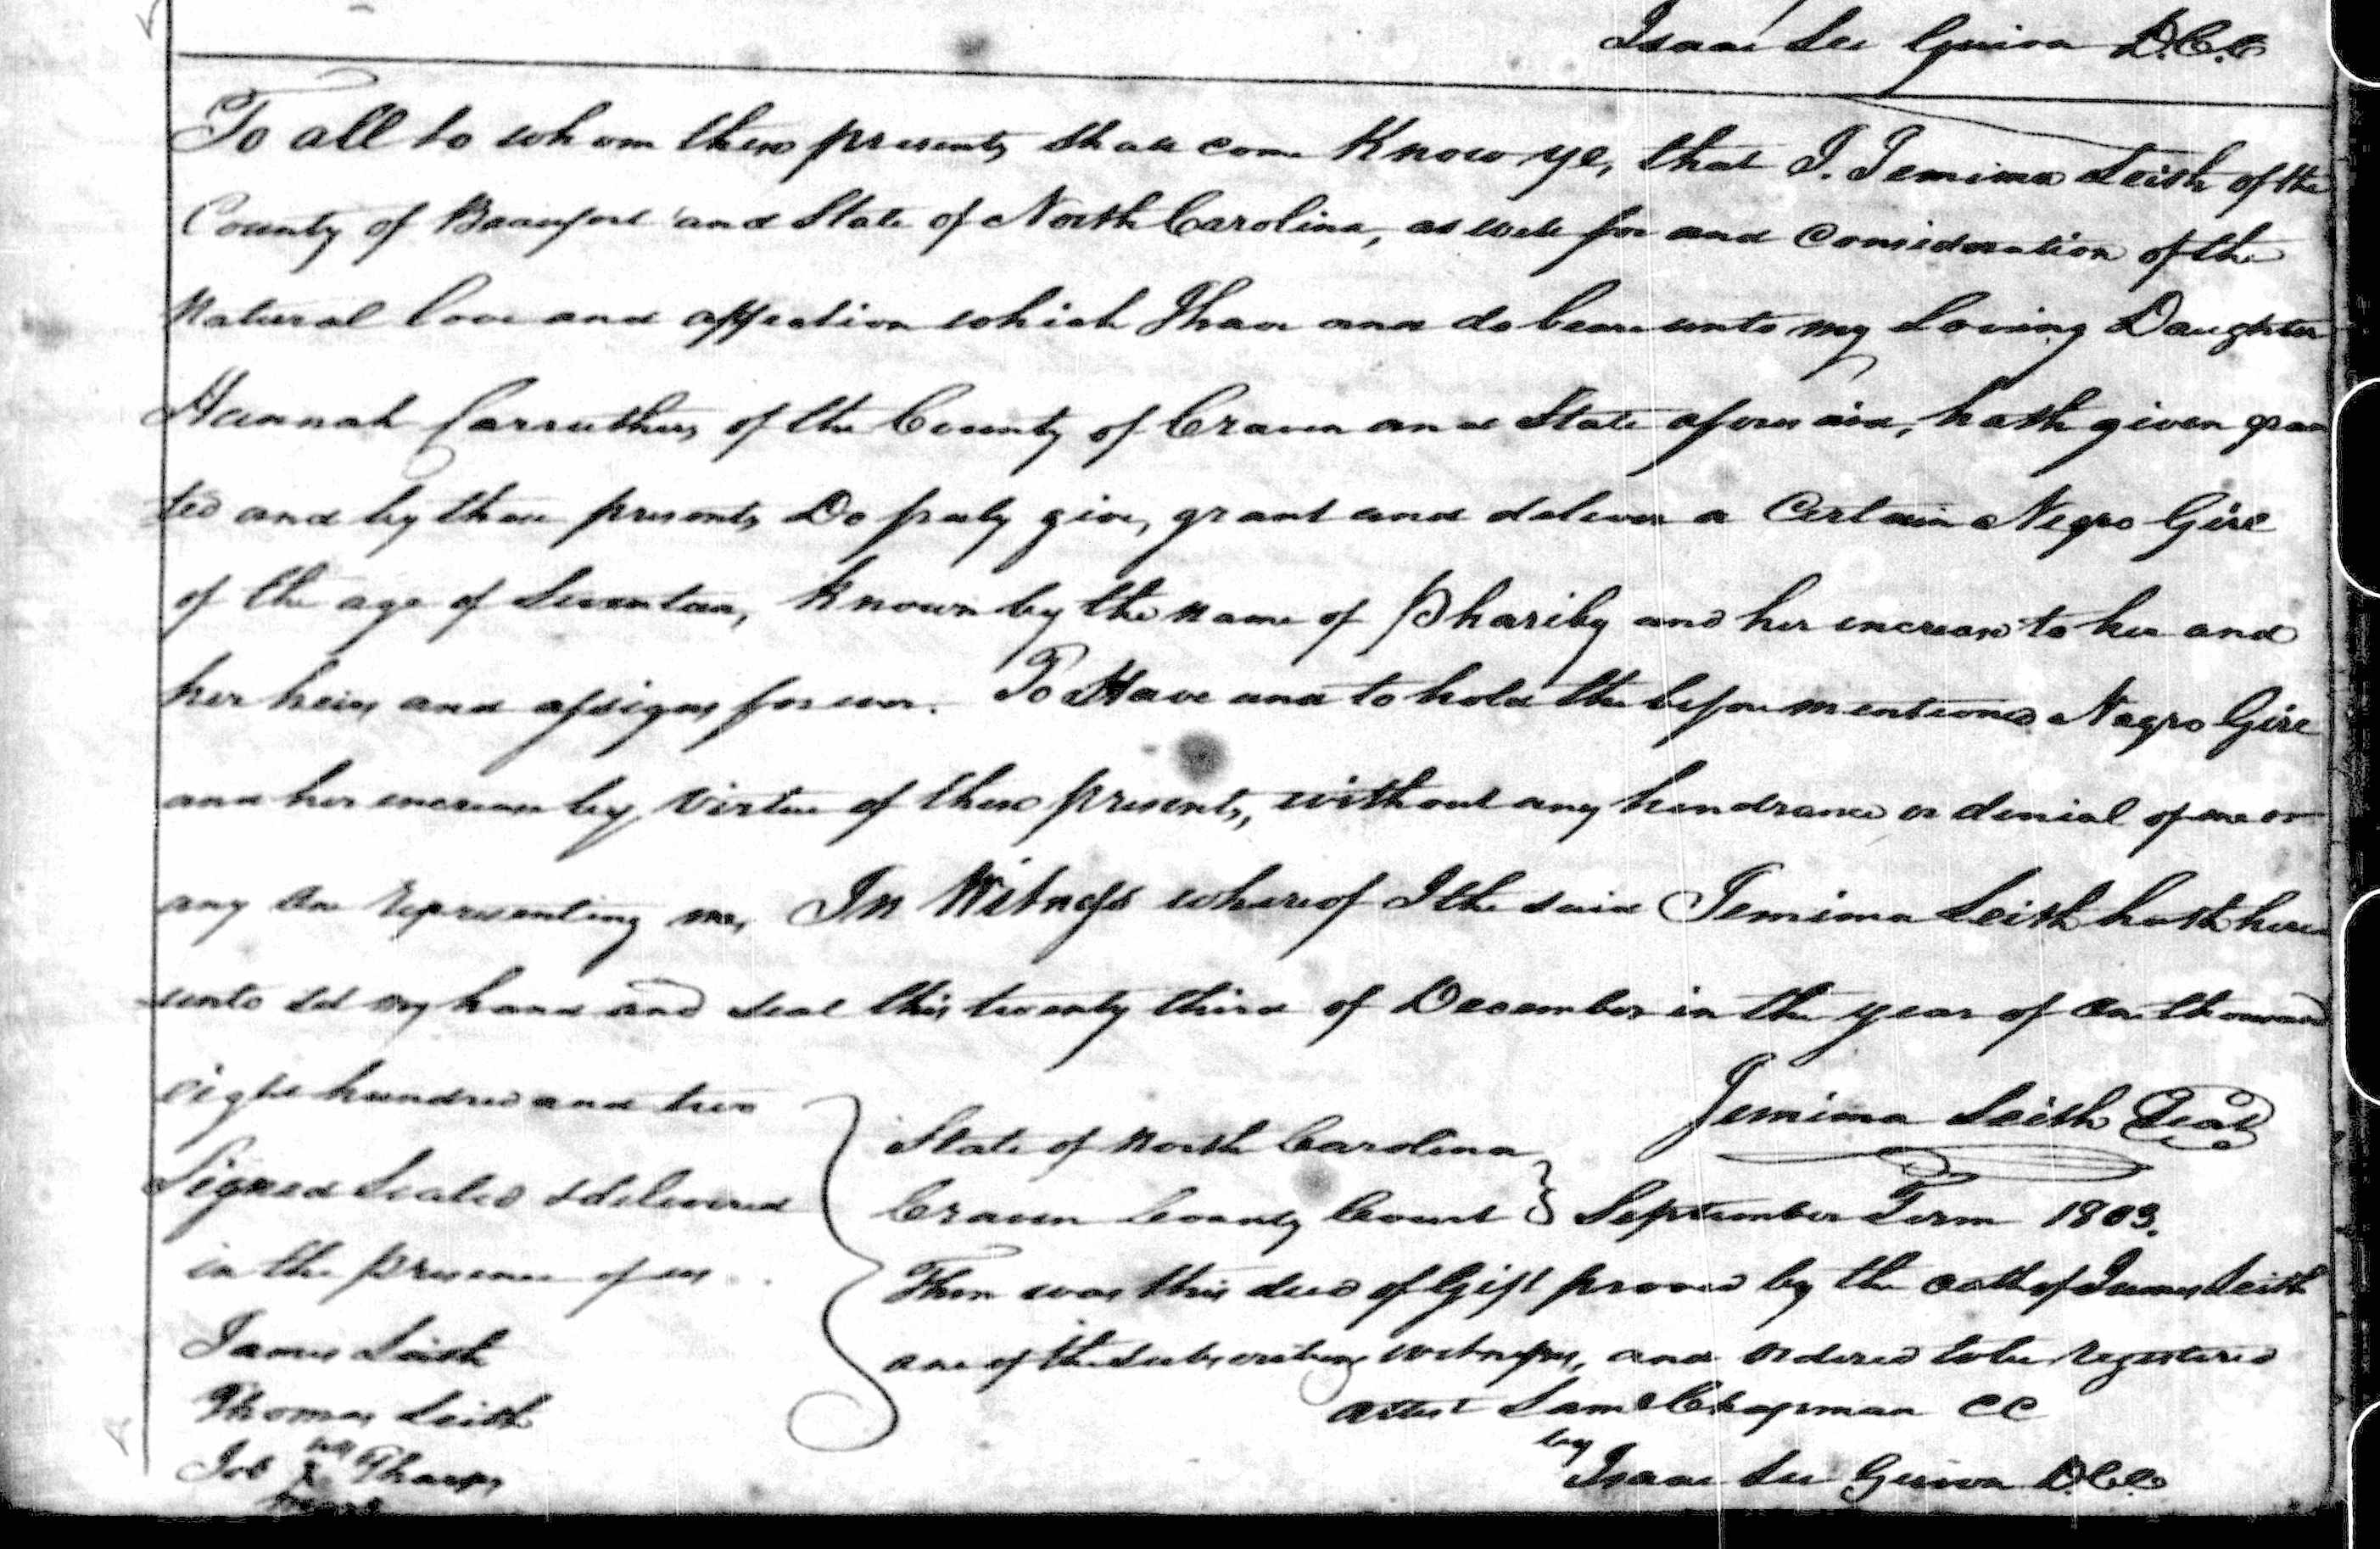 Isaac Lee Guion D.C.C
To all to whom these presents shall come Know ye, that I. Jemima Leith of the
County of Beaufort and State of North Carolina, as well for and Consideration of the
Natural love and affection which I have and do bear unto my Loving Daughter
Hannah Carruthers of the County of Craven and State aforesaid, hath given gran
ted and by these presents Do freely give, grant and deliver a Certain Negro Girl
of the age of Seventeen, Known by the name of Phariby and her increase to her and
her heirs and assigns forever. To Have and to hold the before mentioned Negro Girl
and her increase by Virtue of these presents, without any hendrance or denial of me or
any one representing me, In Witness whereof I the said Jemima Leith hath here
unto set my hand and seal this twenty third of December in the year of One thousand
eight hundred and two
Jemima Leith Seal
Signed Sealed & delivered
in the presence of us
James Leith
Thomas Leith
Job his X mark Tharp
State of North Carolina
Craven County Court } September Term 1803.
Then was this deed of Gift proved by the oath of James Leith
one of the subscribing witnesses, and ordered to be registered
Attest Saml Chapman CC
by
Isaac Lee Guion D.C.C.